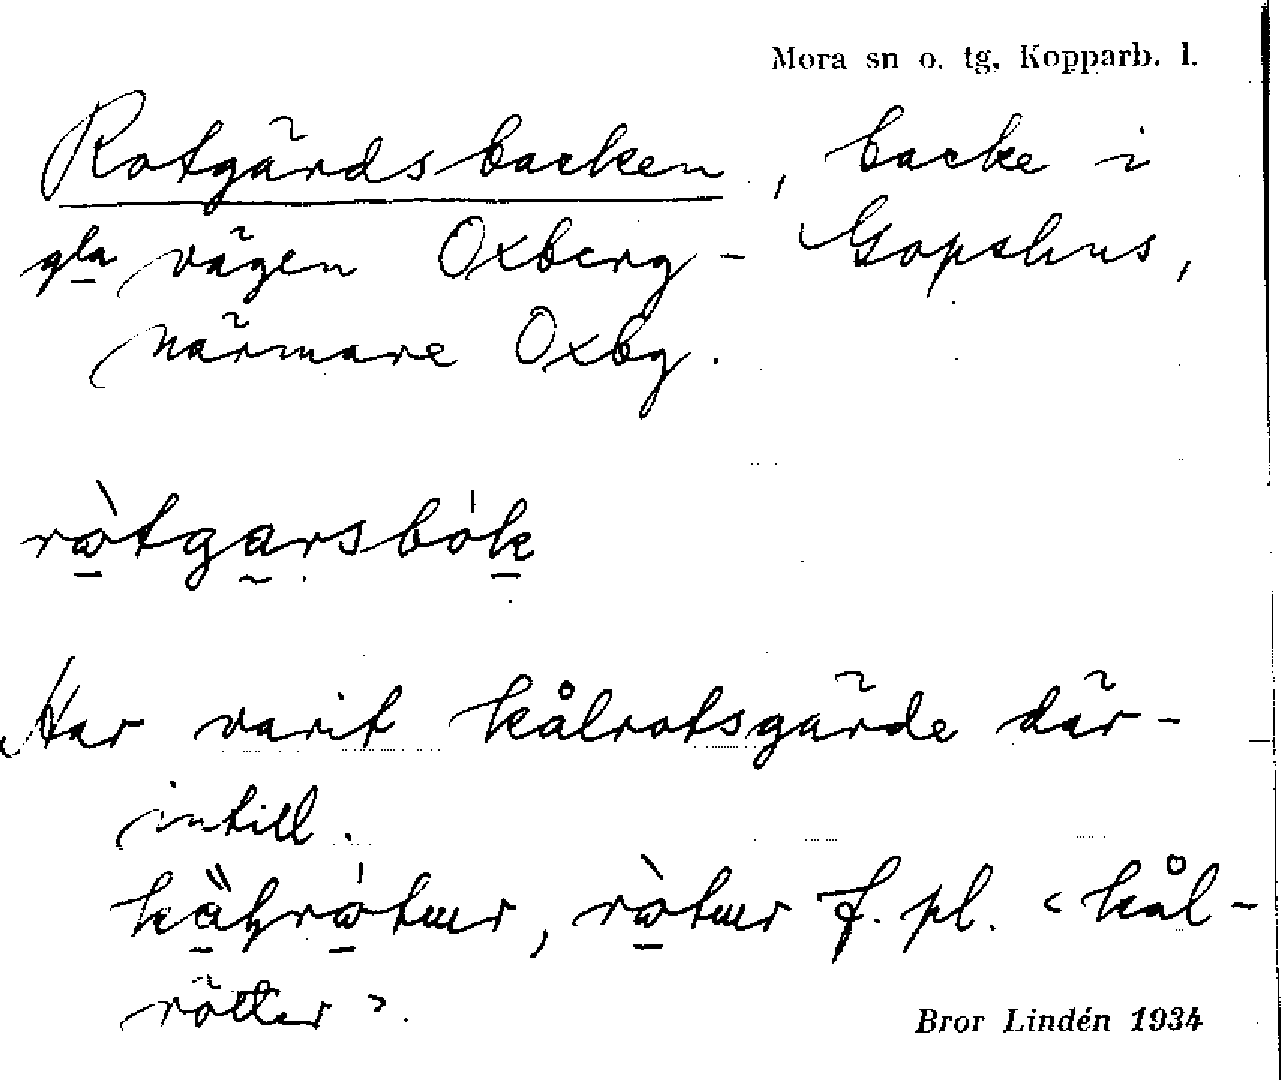 Mora sn o. tg, Kopparb. l.
Rotgärdsbacken, backe i
gla vägen Oxberg - Gopshus,
närmare Oxbg.
ròtgarsbók
Har varit kålrotsgärde där-
intill.
f. pl. < kål-
rötter >.
Bror Lindén 1934